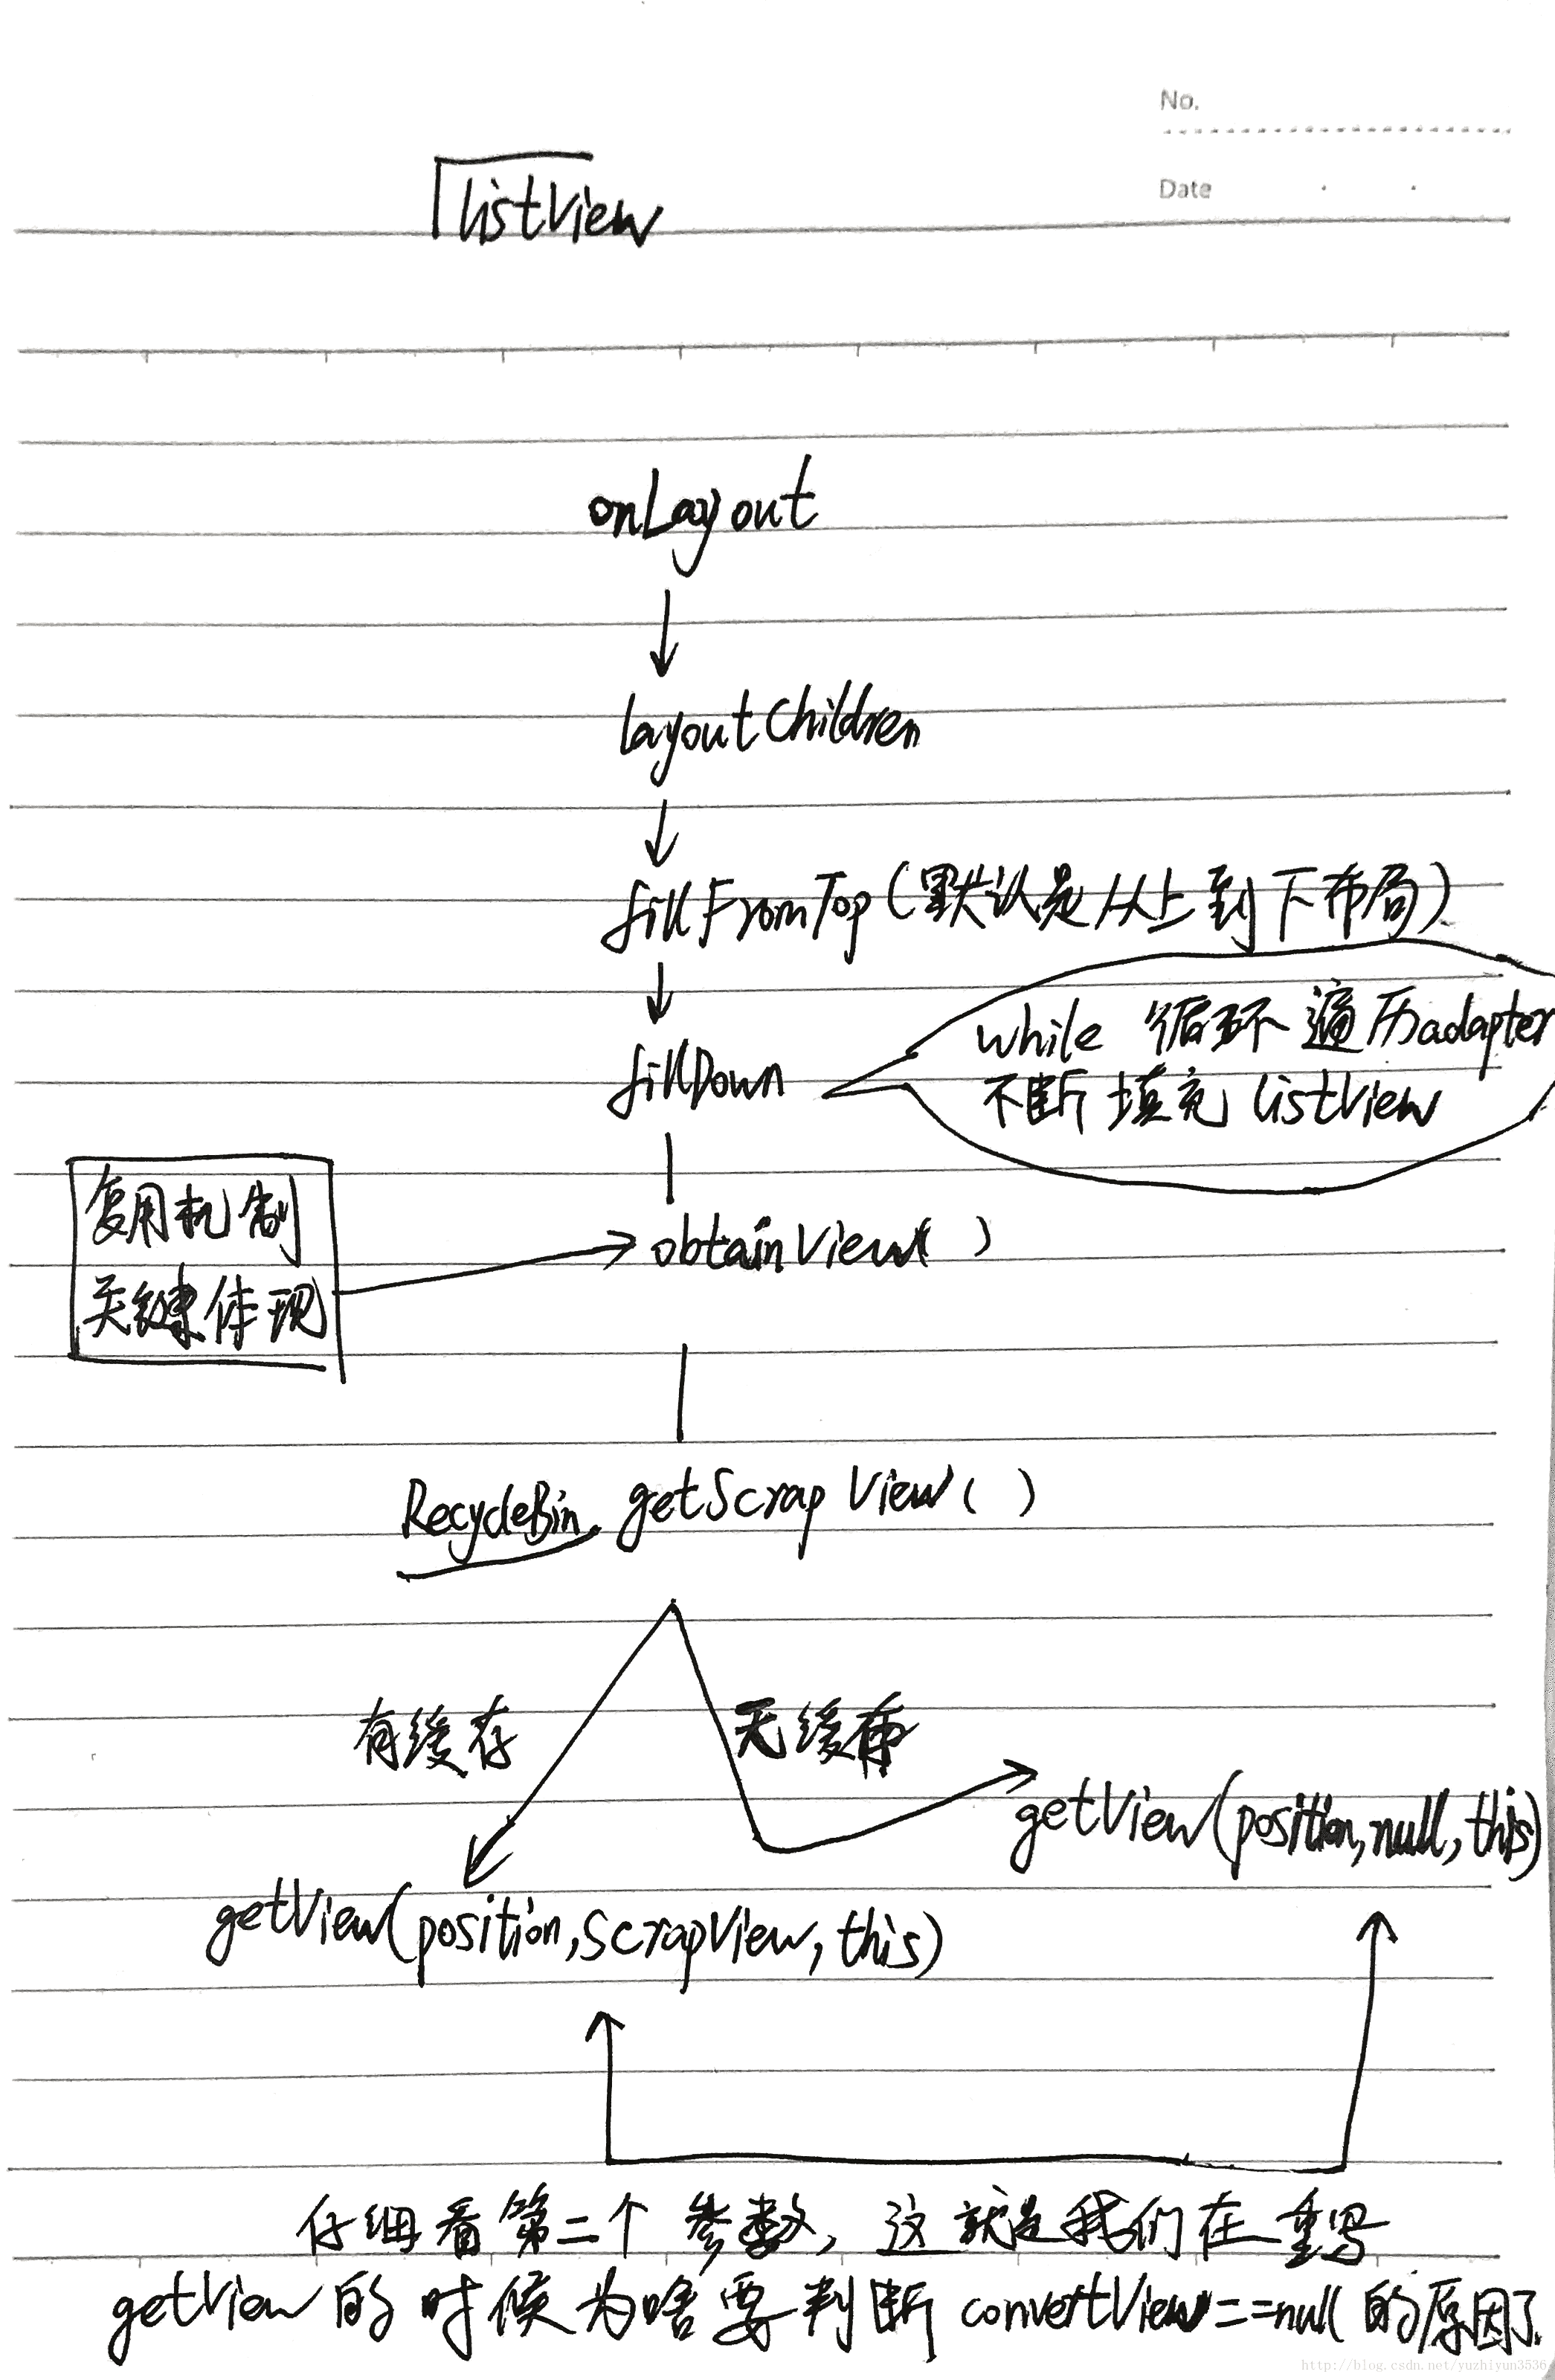 No.
Date
listView
onLayout
layoutChildren
fillFromTop(默认是从上到下布局)
while 循环遍历adapter
fillDown
不断填充listView
复用机制
obtainView( )
关键体现
RecycleBin.getScrapView( )
有缓存
无缓存
getView(position,null,this)
getView(position,ScrapView,this)
仔细看第二个参数,这就是我们在重写
getView的时候为啥要判断convertView==null的原因了.
http://blog.csdn.net/yuzhiyun3536